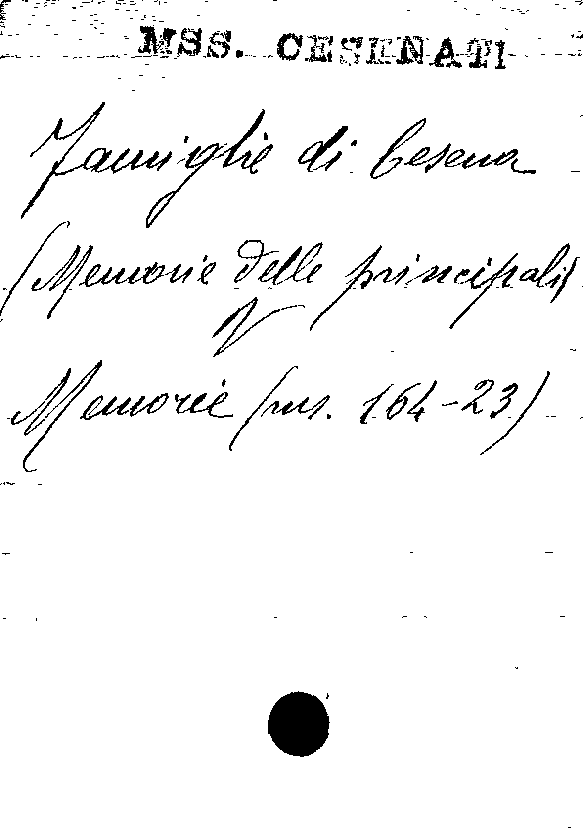 MSS. CESENATI
Famiglie di Cesena
(Memorie delle principali)
V
Memorie (ms. 164-23)